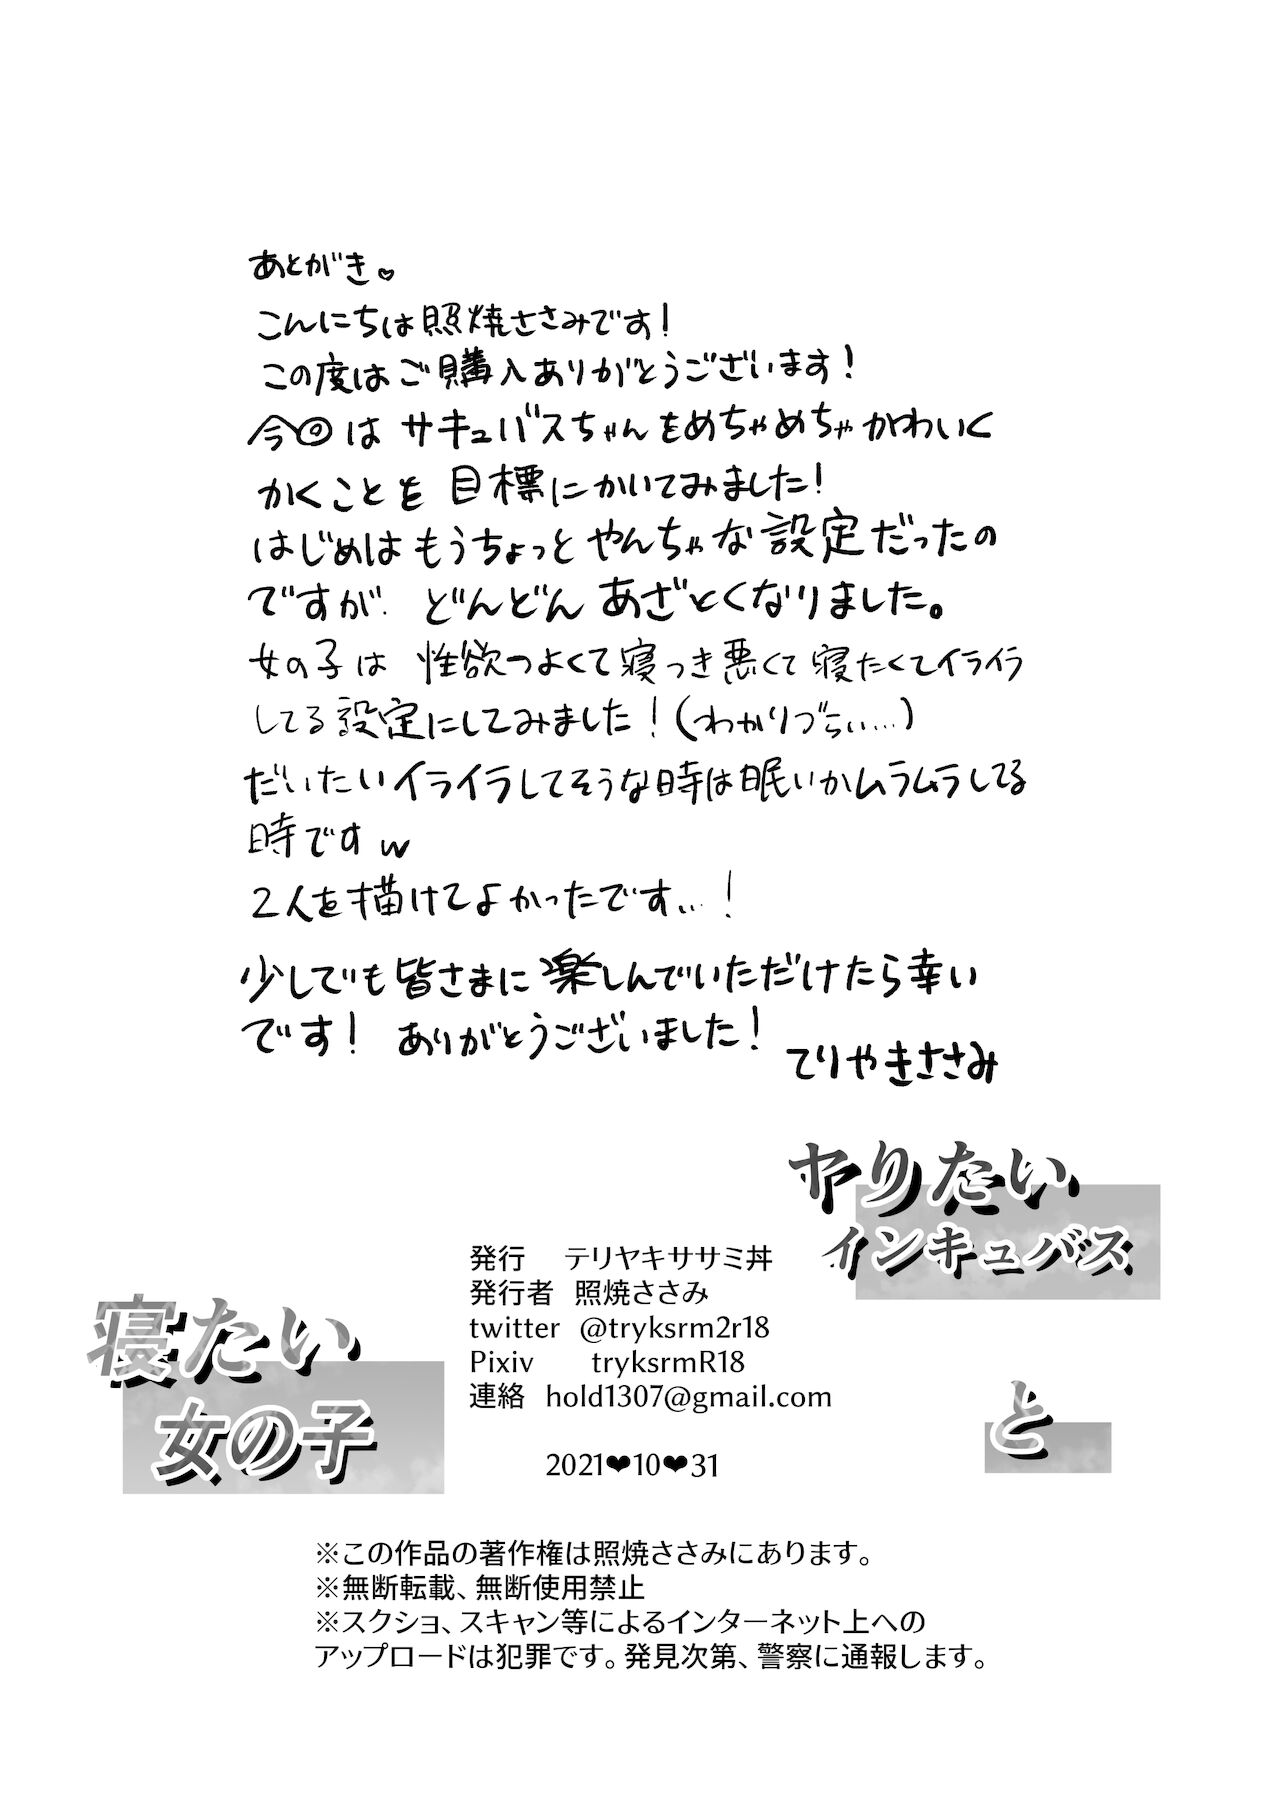 あとがき♥
こんにちは照焼ささみです!
この度はご購入ありがとうございます!
今回は サキュバスちゃんをめちゃめちゃかわいく
かくことを 目標にかいてみました!
はじめはもうちょっと やんちゃな設定だったの
ですが どんどん あざとくなりました。
女の子は 性欲つよくて寝つき悪くて寝たくてイライラ
してる設定にしてみました!(わかりづらい…)
だいたいイライラしてそうな時は眠いかムラムラしてる
時ですw
2人を描けてよかったです…!
少しでも皆さまに楽しんでいただけたら幸い
です! ありがとうございました!
てりやきささみ
ヤりたい
インキュバス
と
寝たい
女の子
発行 テリヤキササミ丼
発行者 照焼ささみ
twitter @tryksrm2r18
Pixiv tryksrmR18
連絡 hold1307@gmail.com
2021❤10❤31
※この作品の著作権は照焼ささみにあります。
※無断転載、無断使用禁止
※スクショ、スキャン等によるインターネット上への
アップロードは犯罪です。発見次第、警察に通報します。